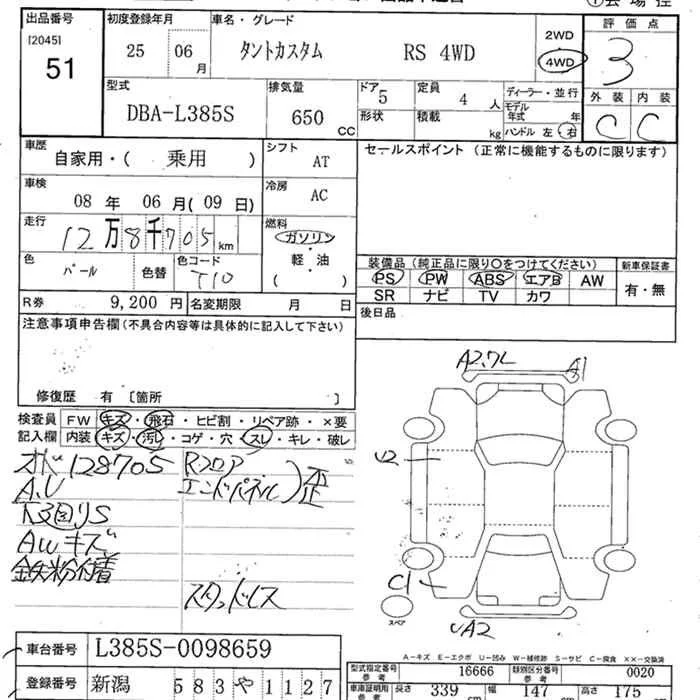 出品番号 初度登録年月 車名・グレード 評価点
[2045] 25 06月 タントカスタム RS 4WD 2WD
51 4WD 3
型式 排気量 ドア 定員 ディーラー・並行 外装 内装
DBA-L385S 650cc 5 4人 モデル年式 年 C C
形状 積載 kg ハンドル 左・右
車歴 自家用・( 乗用 ) シフト AT セールスポイント (正常に機能するものに限ります)
車検 08年 06月(09日) 冷房 AC
走行 12万8千705km 燃料 ガソリン・軽・油 ( )
色 パール 色替 色コード T10
装備品 (純正品に限り○をつけてください) 新車保証書
PS PW ABS エアB AW 有・無
SR ナビ TV カワ
R券 9,200円 名変期限 月 日 後日品
注意事項申告欄(不具合内容等は具体的に記入して下さい)
修復歴 有 [箇所 ]
検査員 FW キズ・飛石・ヒビ割・リペア跡・×要
記入欄 内装 キズ・汚レ・コゲ・穴・スレ・キレ・破レ
A2.7L A1
128705 Rフロア
A.U エンドパネル)歪
U2
AWキズ
鉄粉付着
スタッドレス
C1
スペア
UA2
A-キズ E-エクボ U-凹み W-補修跡 S-サビ C-腐食 XX-交換済
車台番号 L385S-0098659
登録番号 新潟 583 や 1127
型式指定番号 参考 16666 類別区分番号 参考 0020
車庫証明用 参考 長さ 339cm 幅 147cm 高さ 175cm